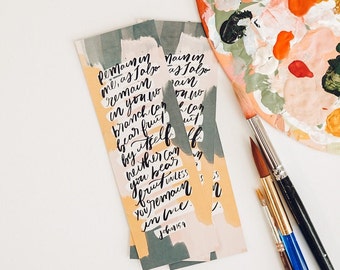 Remain in
me, as I also
remain
in you. No
branch can
bear fruit
by itself
neither can
you bear
fruit unless
you remain
in me.
John 15:4